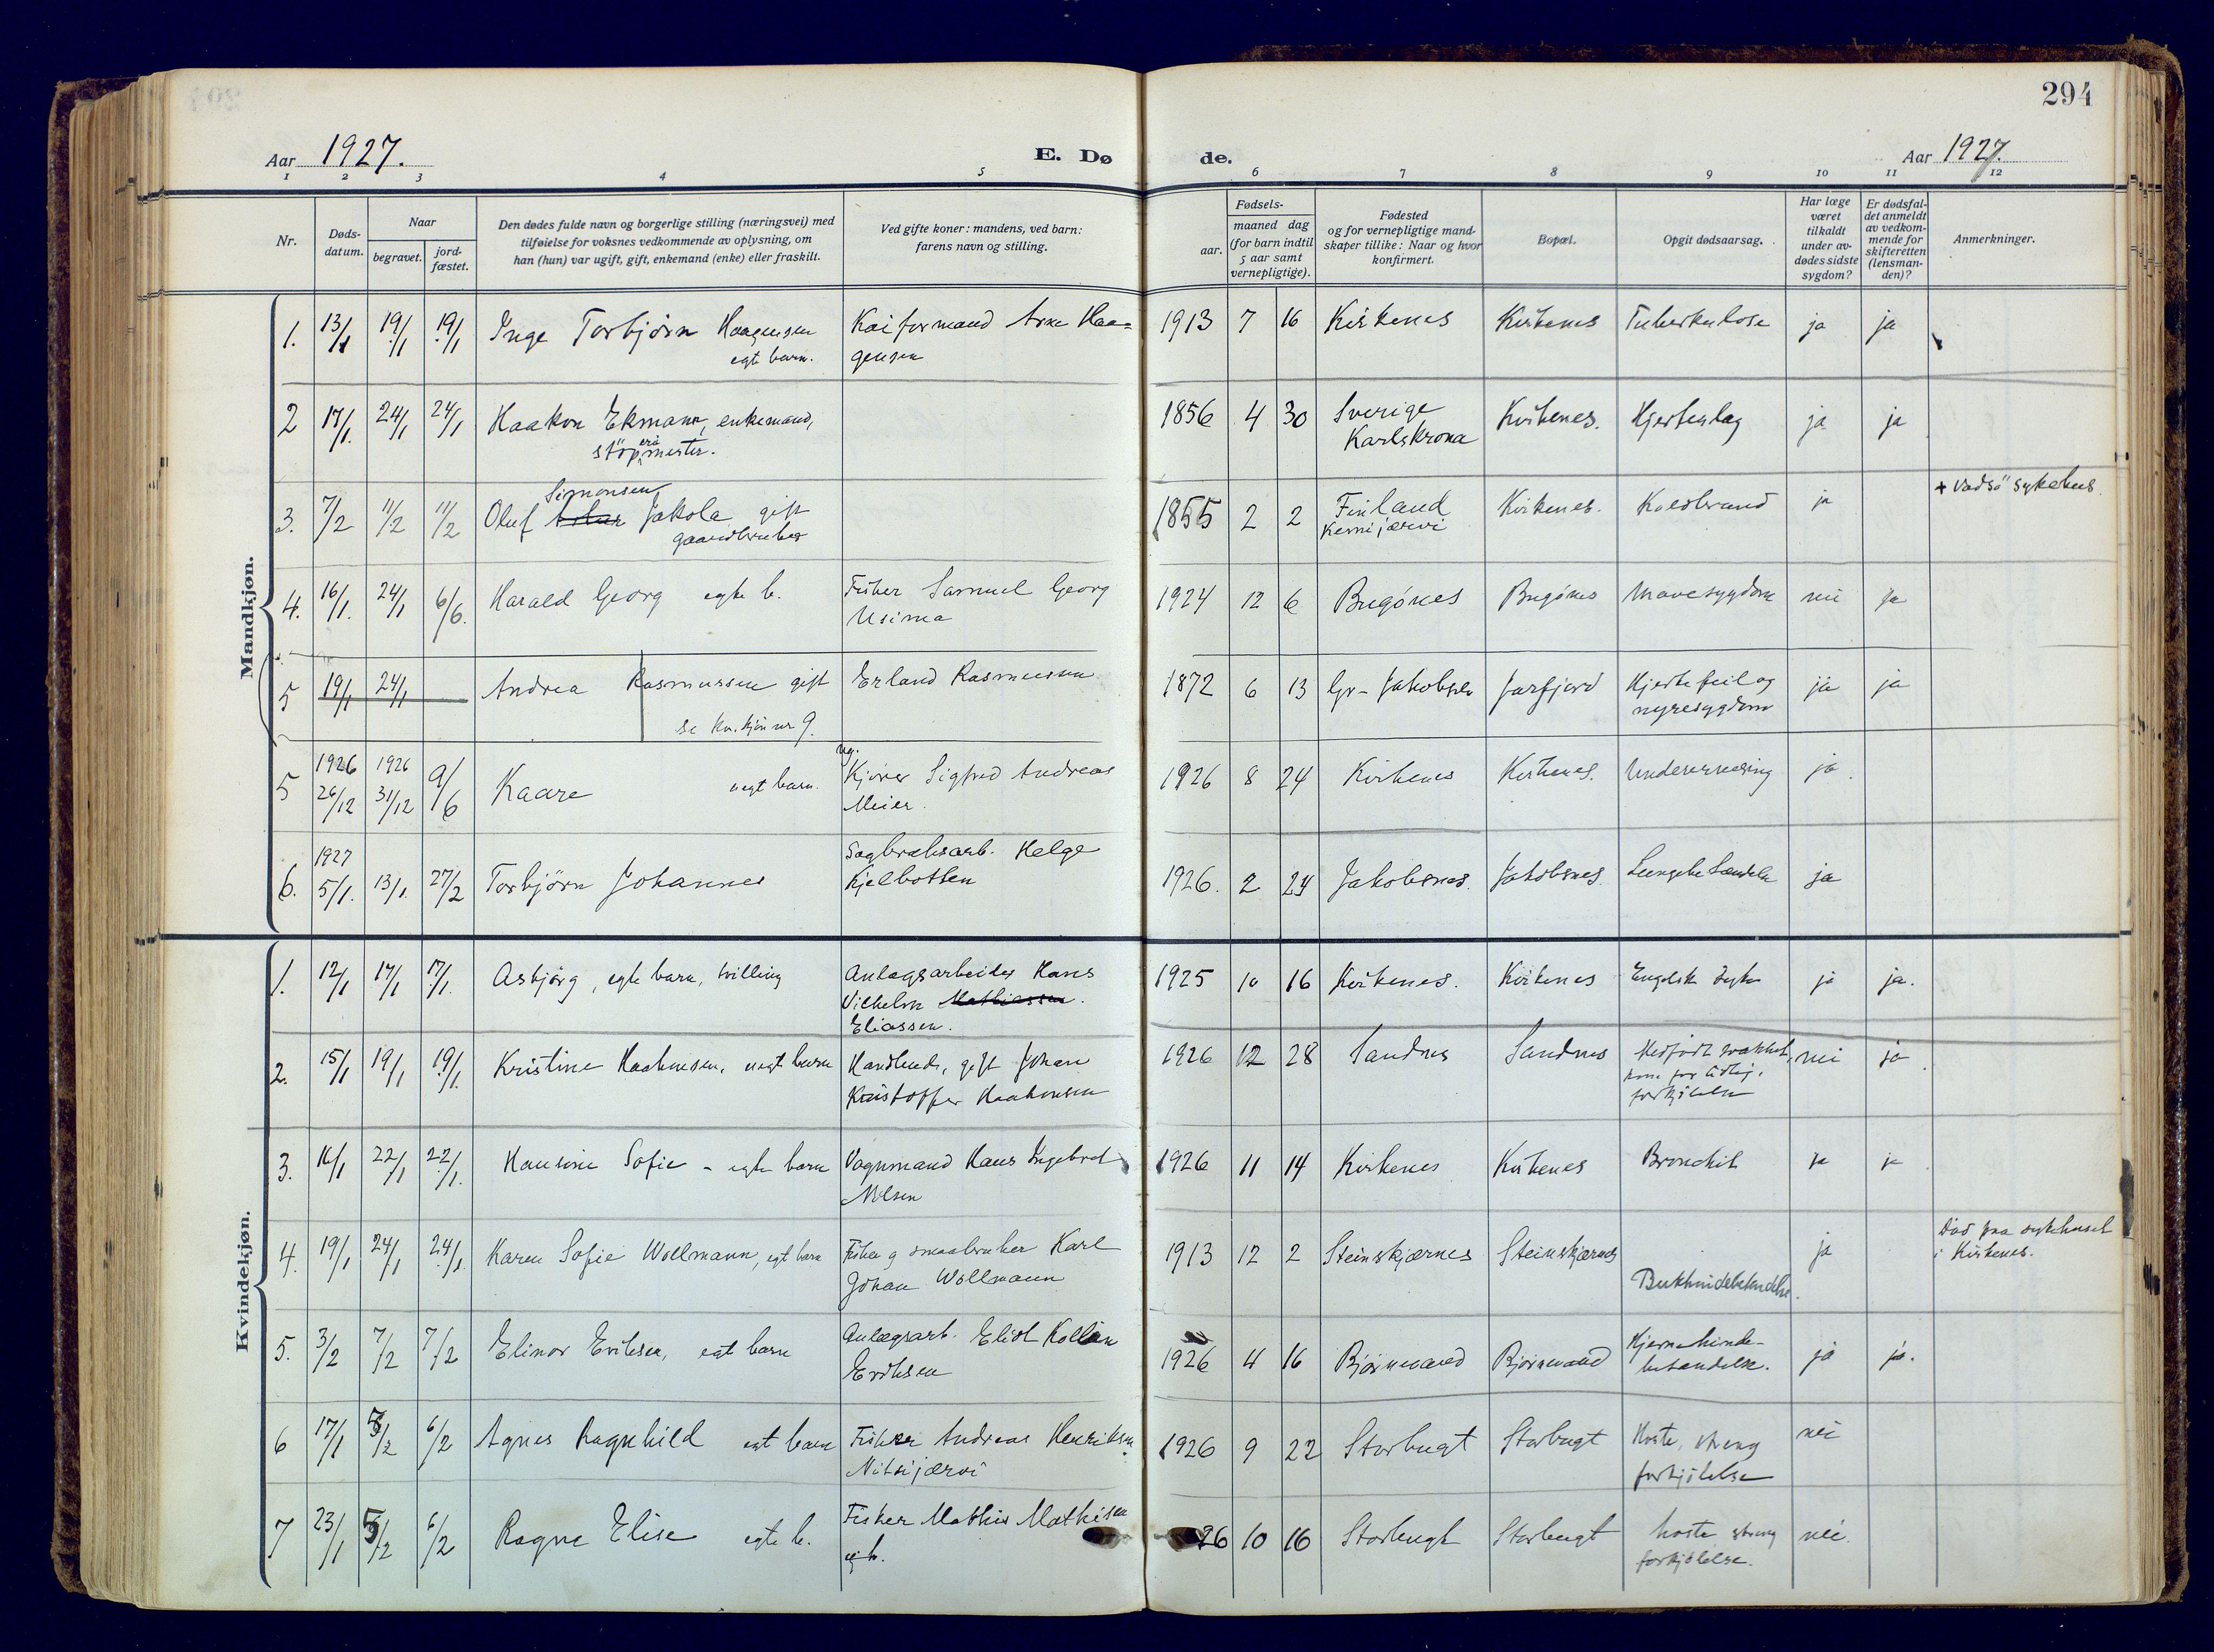 294
Aar 1927.
E. Dø de.
Aar 1927.
1 2 3 4 5 6 7 8 9 10 11 12
Nr.
Døds-
datum.
Naar
begravet.
jord-
fæstet.
Den dødes fulde navn og borgerlige stilling (næringsvei) med
tilføielse for voksnes vedkommende av oplysning, om
han (hun) var ugift, gift, enkemand (enke) eller fraskilt.
Ved gifte koner: mandens, ved barn:
farens navn og stilling.
Fødsels-
aar.
maaned dag
(for barn indtil
5 aar samt
vernepligtige).
Fødested
og for vernepligtige mand-
skaper tillike: Naar og hvor
konfirmert.
Bopæl.
Opgit dødsaarsag.
Har læge
været
tilkaldt
under av-
dødes sidste
sygdom?
Er dødsfal-
det anmeldt
av vedkom-
mende for
skifteretten
(lensman-
den)?
Anmerkninger.
Mandkjøn.
1. 13/1 19/1 19/1 Inge Torbjørn Haagensen Kaiformand Arne Haa= 1913 7 16 Kirkenes Kirkenes Tuberkulose ja ja
egte barn. gensen
2 17/1. 24/1 24/1 Haakon Ekmann, enkemand, 1856 4 30 Sverige Kirkenes. Hjerteslag ja ja
støperimester. Karlskrona
Simonsen
3. 7/2 11/2 11/2 Oluf Jakola gift 1855 2 2 Finland Kirkenes. Koldbrand ja + Vadsö sykehus.
gaardbruker Kemijærvi
4. 16/1. 24/1 6/6. Harald Georg egte b. Fisker Samuel Georg 1924 12 6 Bugønes Bugønes Mavesygdom nei ja
Usima
5 19/1 24/1 Andrea Rasmussen gift Erland Rasmussen 1872 6 13 Gr-Jakobselv Jarfjord Hjertefeil og ja ja
se kv.kjøn nr 9. nyresygdom
5 1926 26/12 1926 31/12 9/6 Kaare uegt barn. ug. Kjører Sigfred Andreas 1926 8 24 Kirkenes Kirkenes. Underernæring ja.
Meier.
6. 1927 5/1. 13/1. 27/2 Torbjörn Johannes Sagbruksarb. Helge 1926. 2 24 Jakobsnes. Jakobsnes. Lungebetændelse ja
Kjelbotten
Kvindekjøn.
1. 12/1 17/1 17/1. Asbjørg, egte barn, tvilling Anlægsarbeider Hans 1925 10 16 Kirkenes. Kirkenes Engelsk syke ja ja.
Vilhelm Mathiassen.
Eliassen.
2. 15/1 19/1 19/1. Kristine Haakonsen, uegt barn Handlende, gift Johan 1926 12 28 Sandnes Sandnes Medfødt svakhet, nei ja
Kristoffer Haakonsen kom for tidlig,
forkjölelse
3. 16/1 22/1 22/1. Hansine Sofie - egte barn Vognmand Hans Ingebret 1926 11 14 Kirkenes Kirkenes Bronchit ja ja
Nilsen
4. 19/1 24/1 24/1. Karen Sofie Wollmann, egt barn Fisker og smaabruker Karl 1913 12 2 Steinskjærnes Steinskjærnes ja Död paa sykehuset
Johan Wollmann Bukhindebetændelse. i Kirkenes.
5. 3/2 7/2 7/2 Elinor Eriksen, egt barn Anlægsarb. Eliot Kollän 1926 4 16 Bjørnevand Bjørnevand Hjernehinde- ja ja.
Eriksen betændelse.
6 17/1 5/2 6/2 Agnes Ragnhild egt barn Fisker Andreas Henriksen 1926 9 22 Storbugt Storbugt Hoste, streng nei
Nitsijærvi forkjölelse
7 23/1 5/2 6/2 Ragne Elise egte b. Fisker Mathis Mathisen 26 10 16 Storbugt Storbugt hoste streng nei.
forkjölelse.